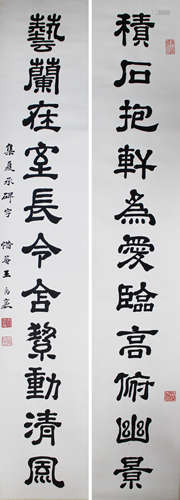 積石抱軒為愛臨高俯幽景
藝蘭在室長令含馨動清風
集夏承碑字
王